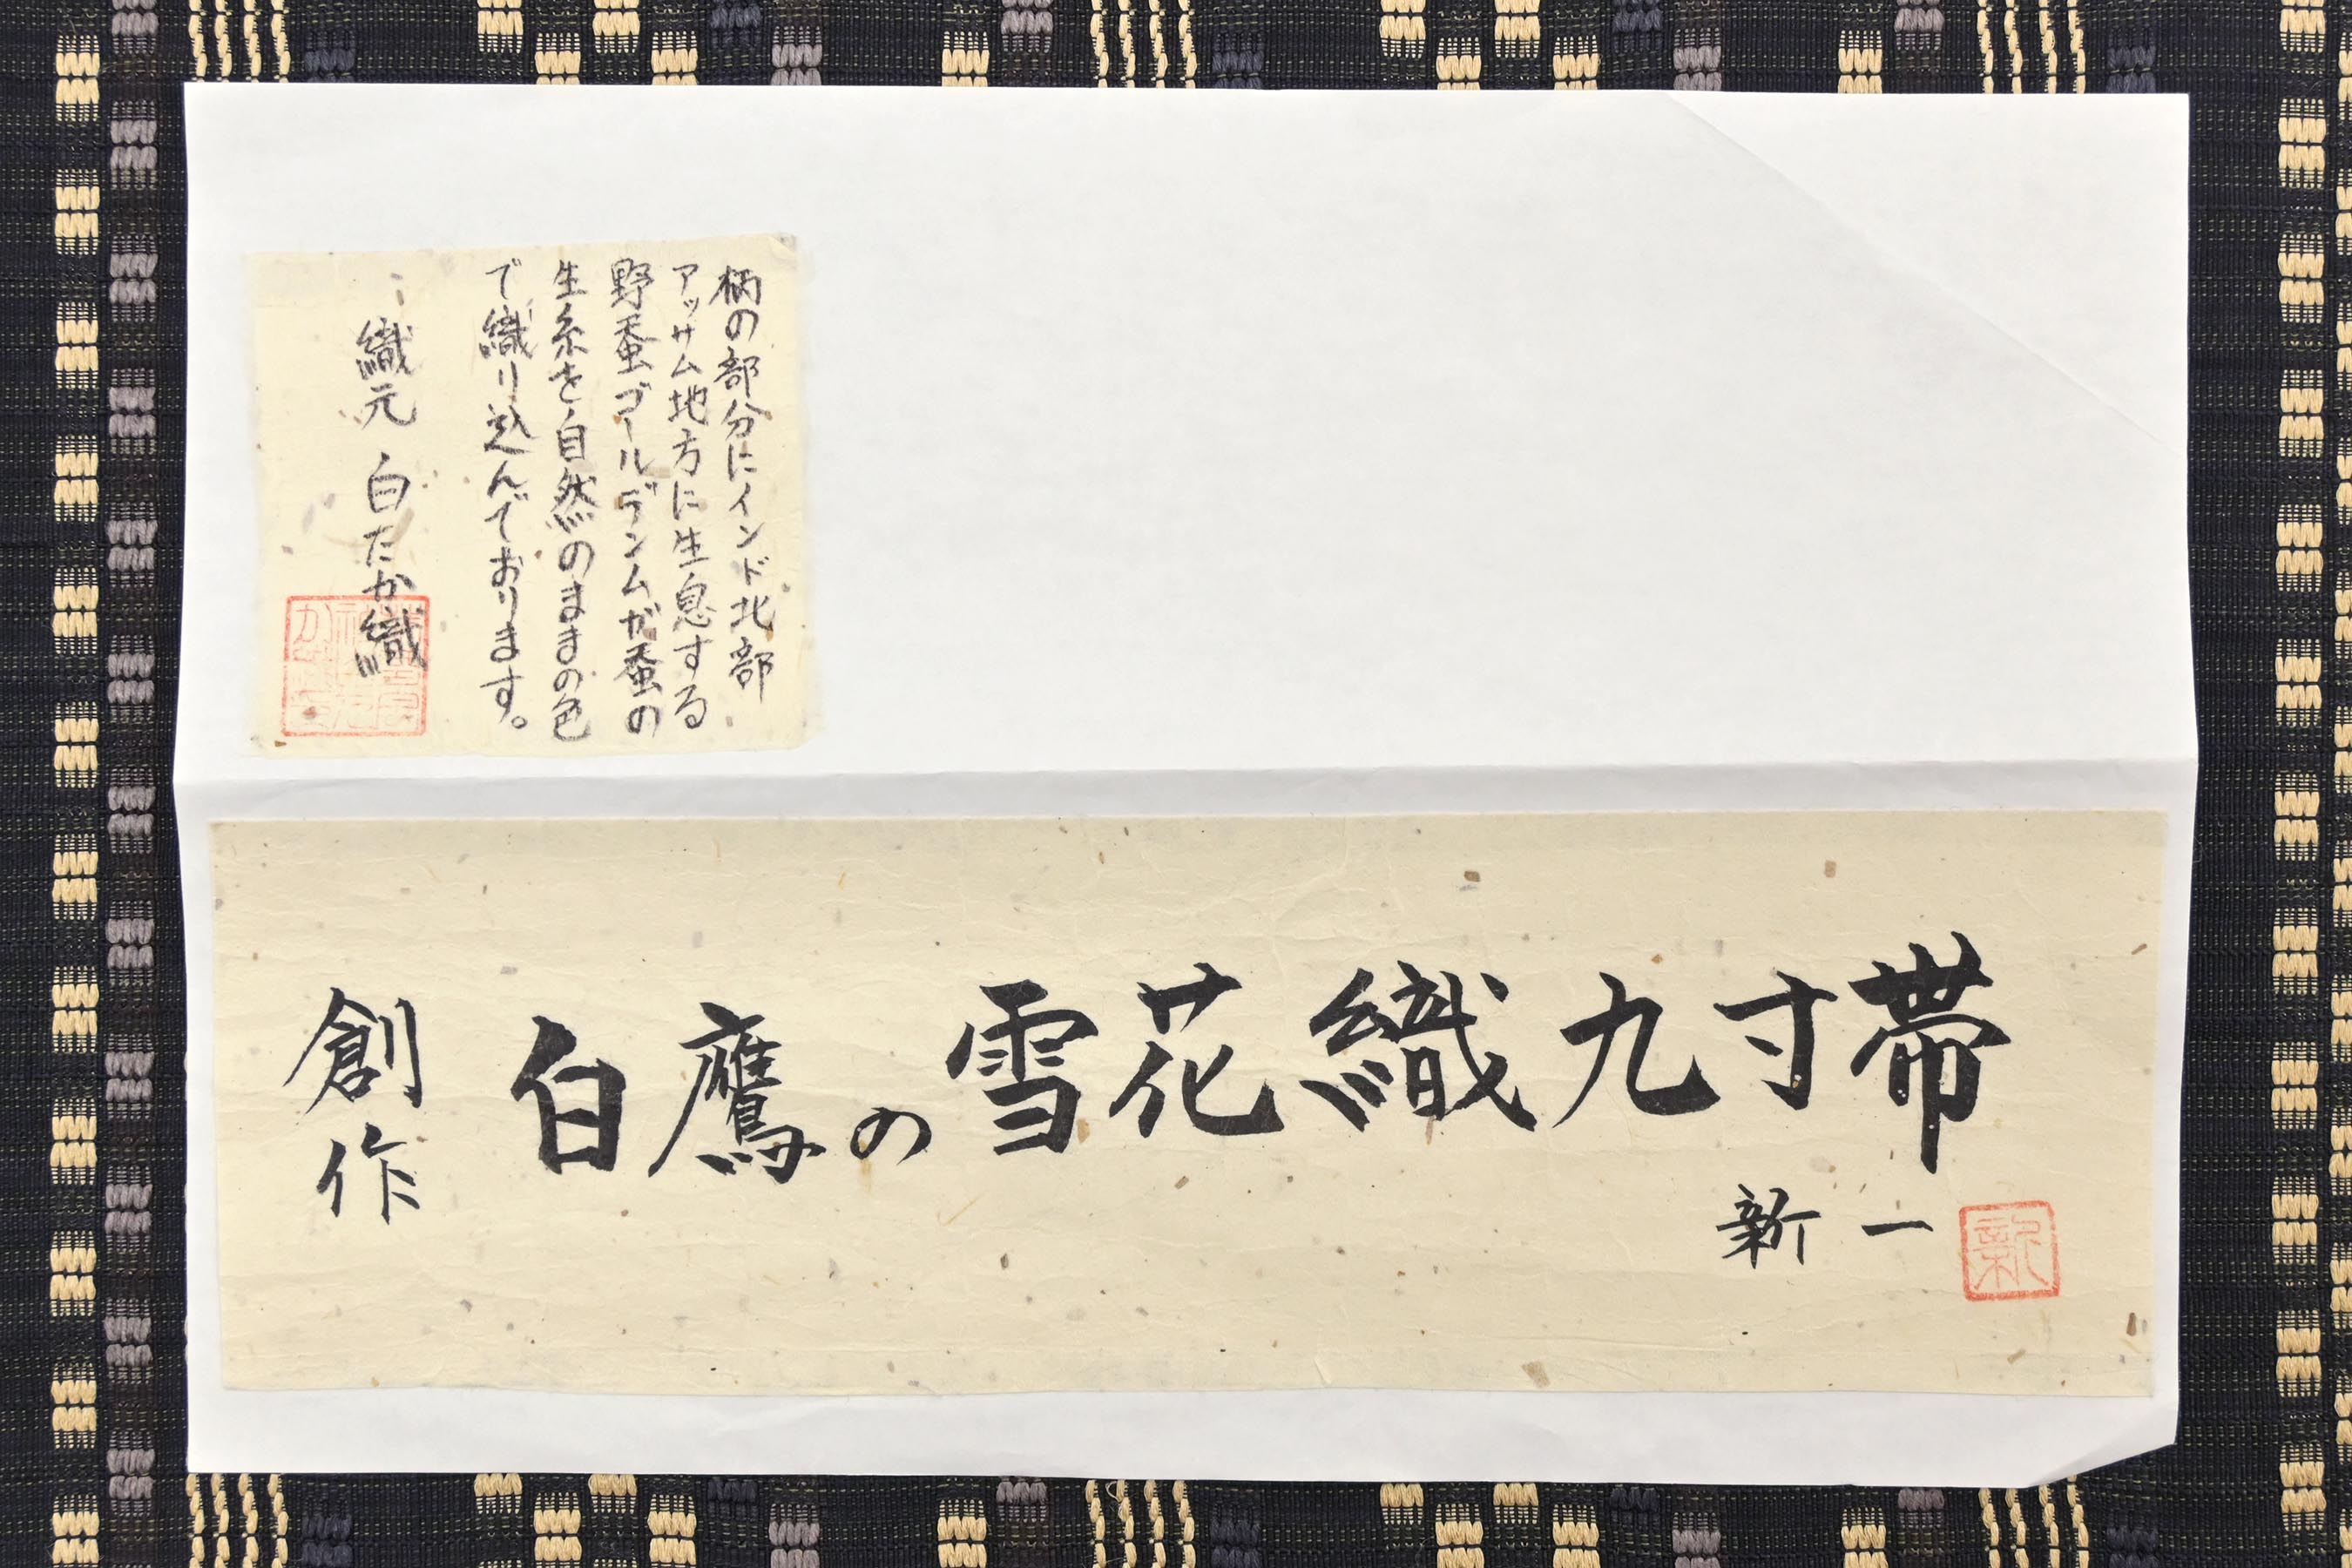 柄の部分にインド北部
アッサム地方に生息する
野蚕ゴールデンムガ蚕の
生糸を自然のままの色
で織り込んでおります。
織元 白たか織
創作
白鷹の雪花織九寸帯
新一
新